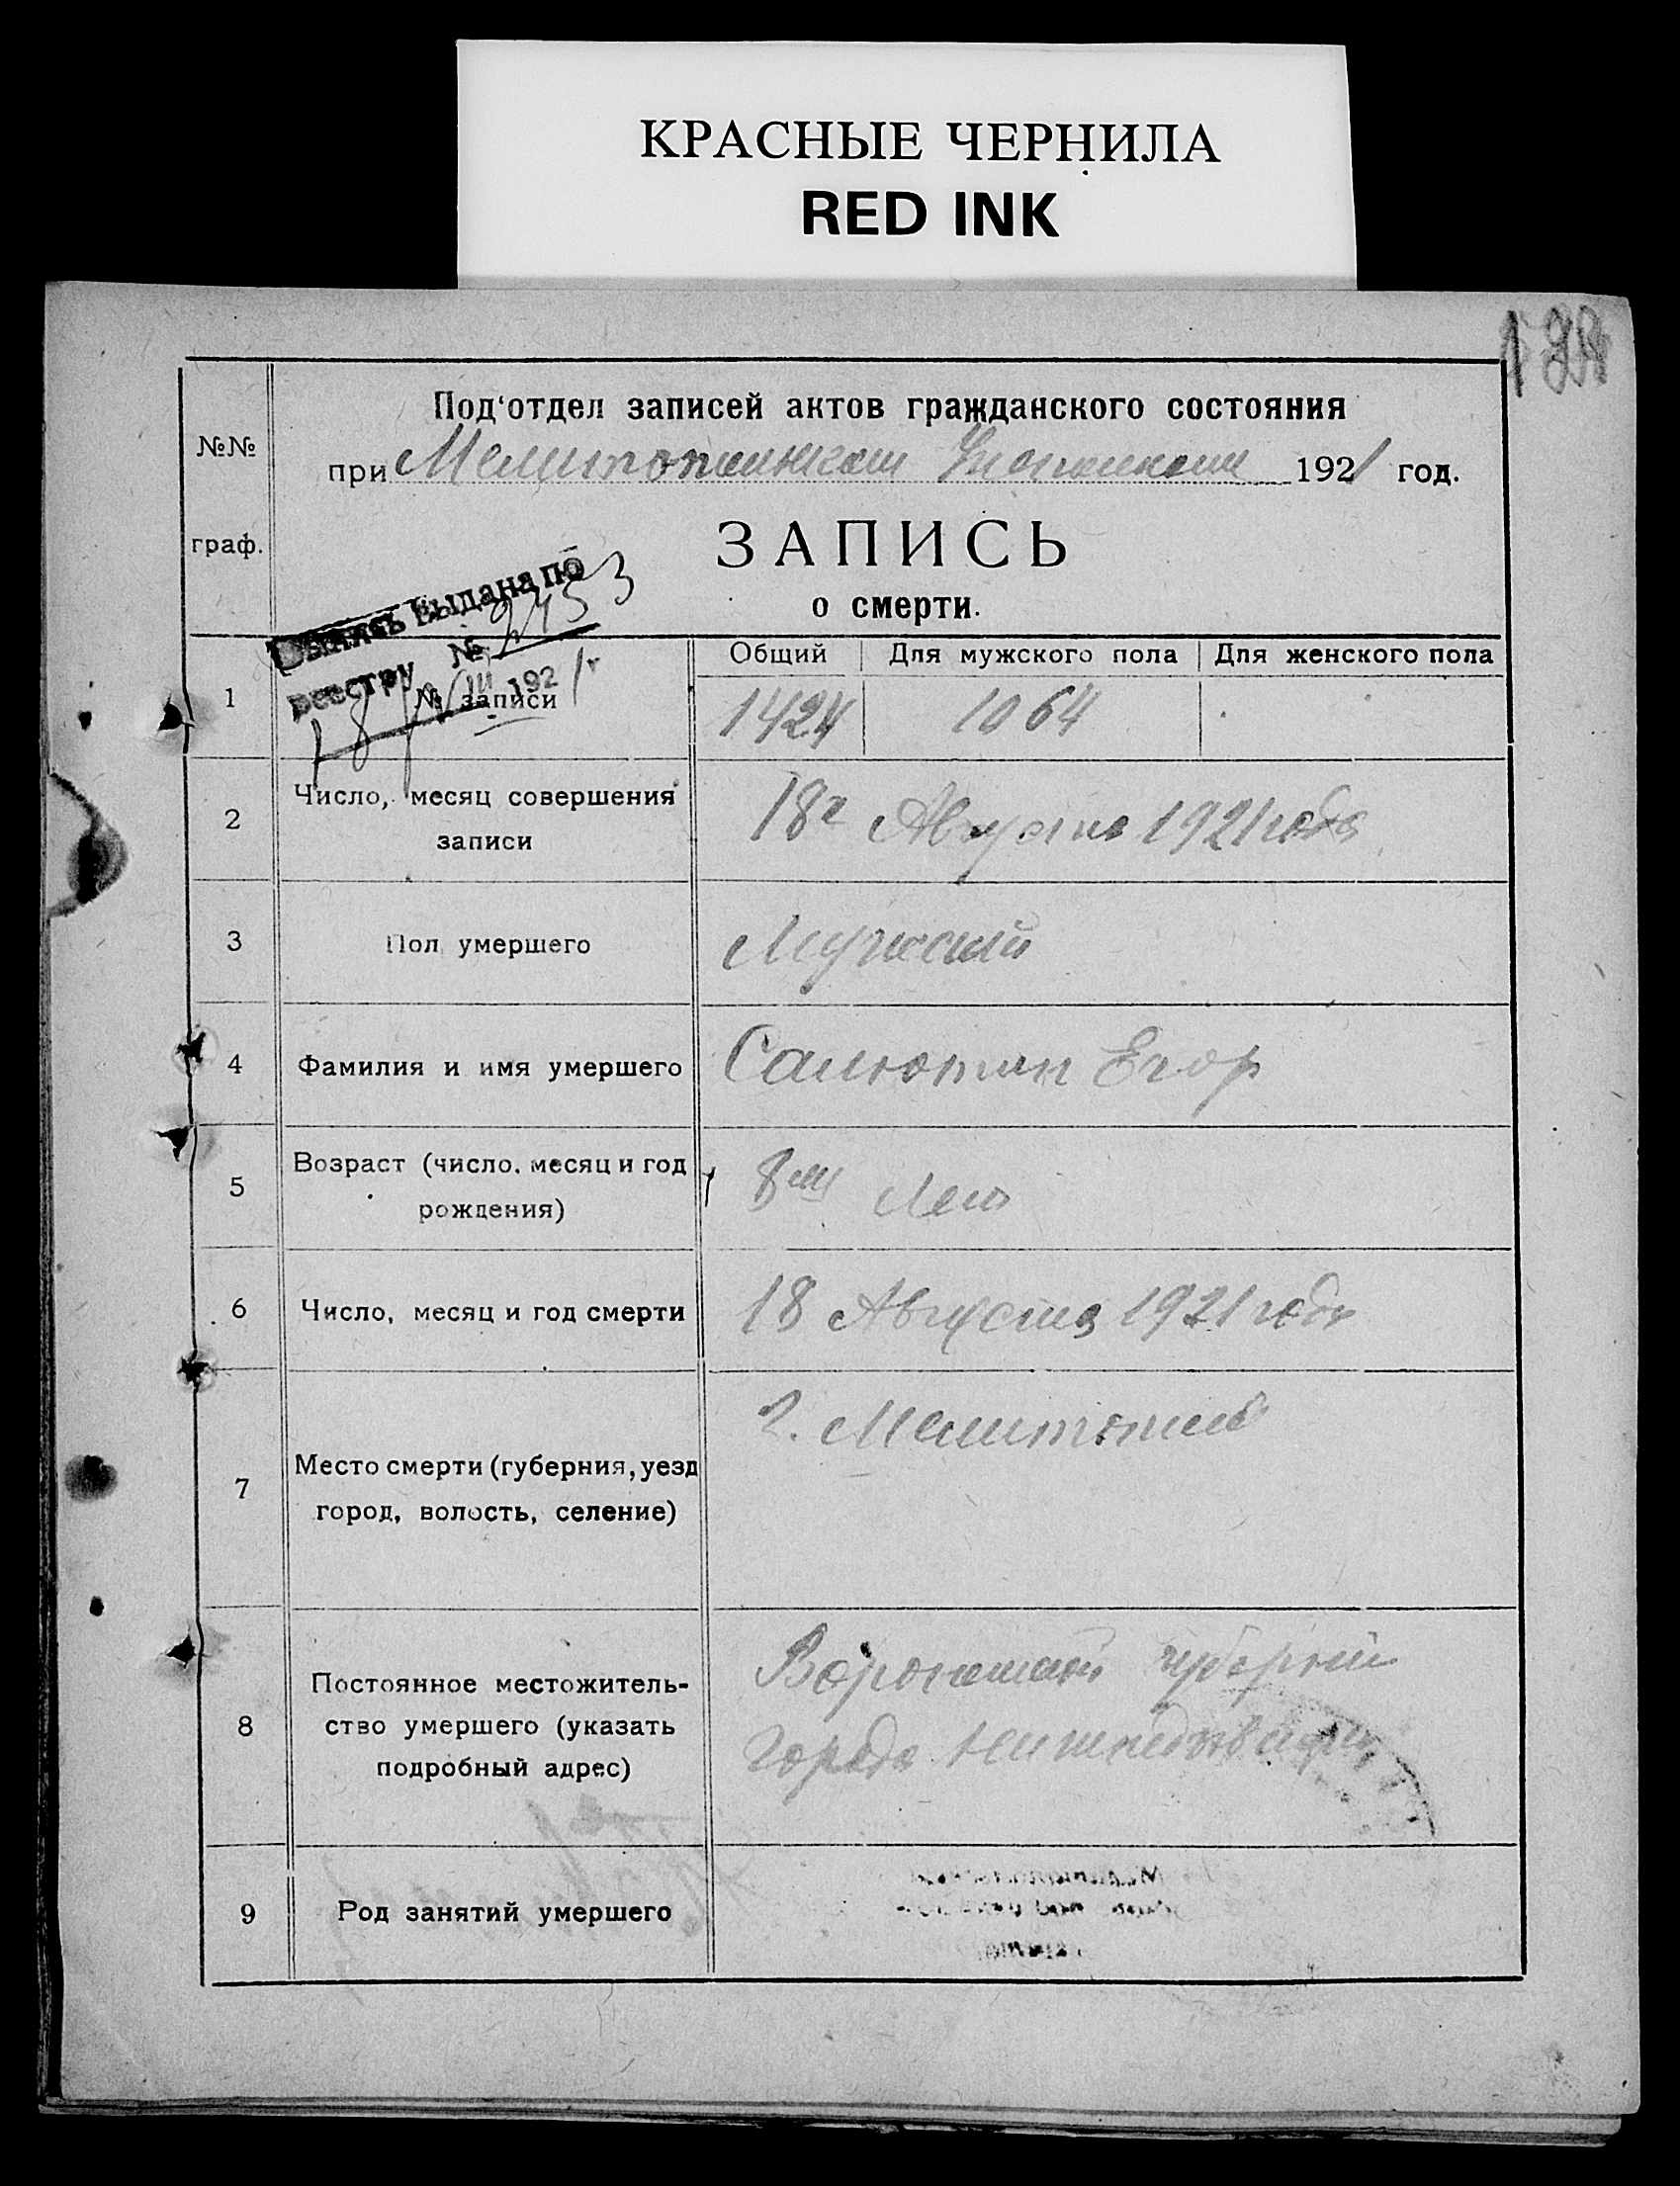 КРАСНЫЕ ЧЕРНИЛА
RED INK
Под'отдел записей актов гражданского состояния
№№
при Мелитопольском 1921 год.
граф.
ЗАПИСЬ
о смерти.
Выпись выдана по
реестру № 2453
18/VIII 1921 г
Общий Для мужского пола Для женского пола
1 № записи 1424 1064
2 Число, месяц совершения
записи
18го Августа 1921 года
3 Пол умершего Мужской
4 Фамилия и имя умершего Салютин Егор
5 Возраст (число, месяц и год
рождения)
8ми лет
6 Число, месяц и год смерти 18 Августа 1921 года
7 Место смерти (губерния, уезд
город, волость, селение)
г. Мелитополь
8 Постоянное местожитель-
ство умершего (указать
подробный адрес)
Воронежской губернии
города
9 Род занятий умершего